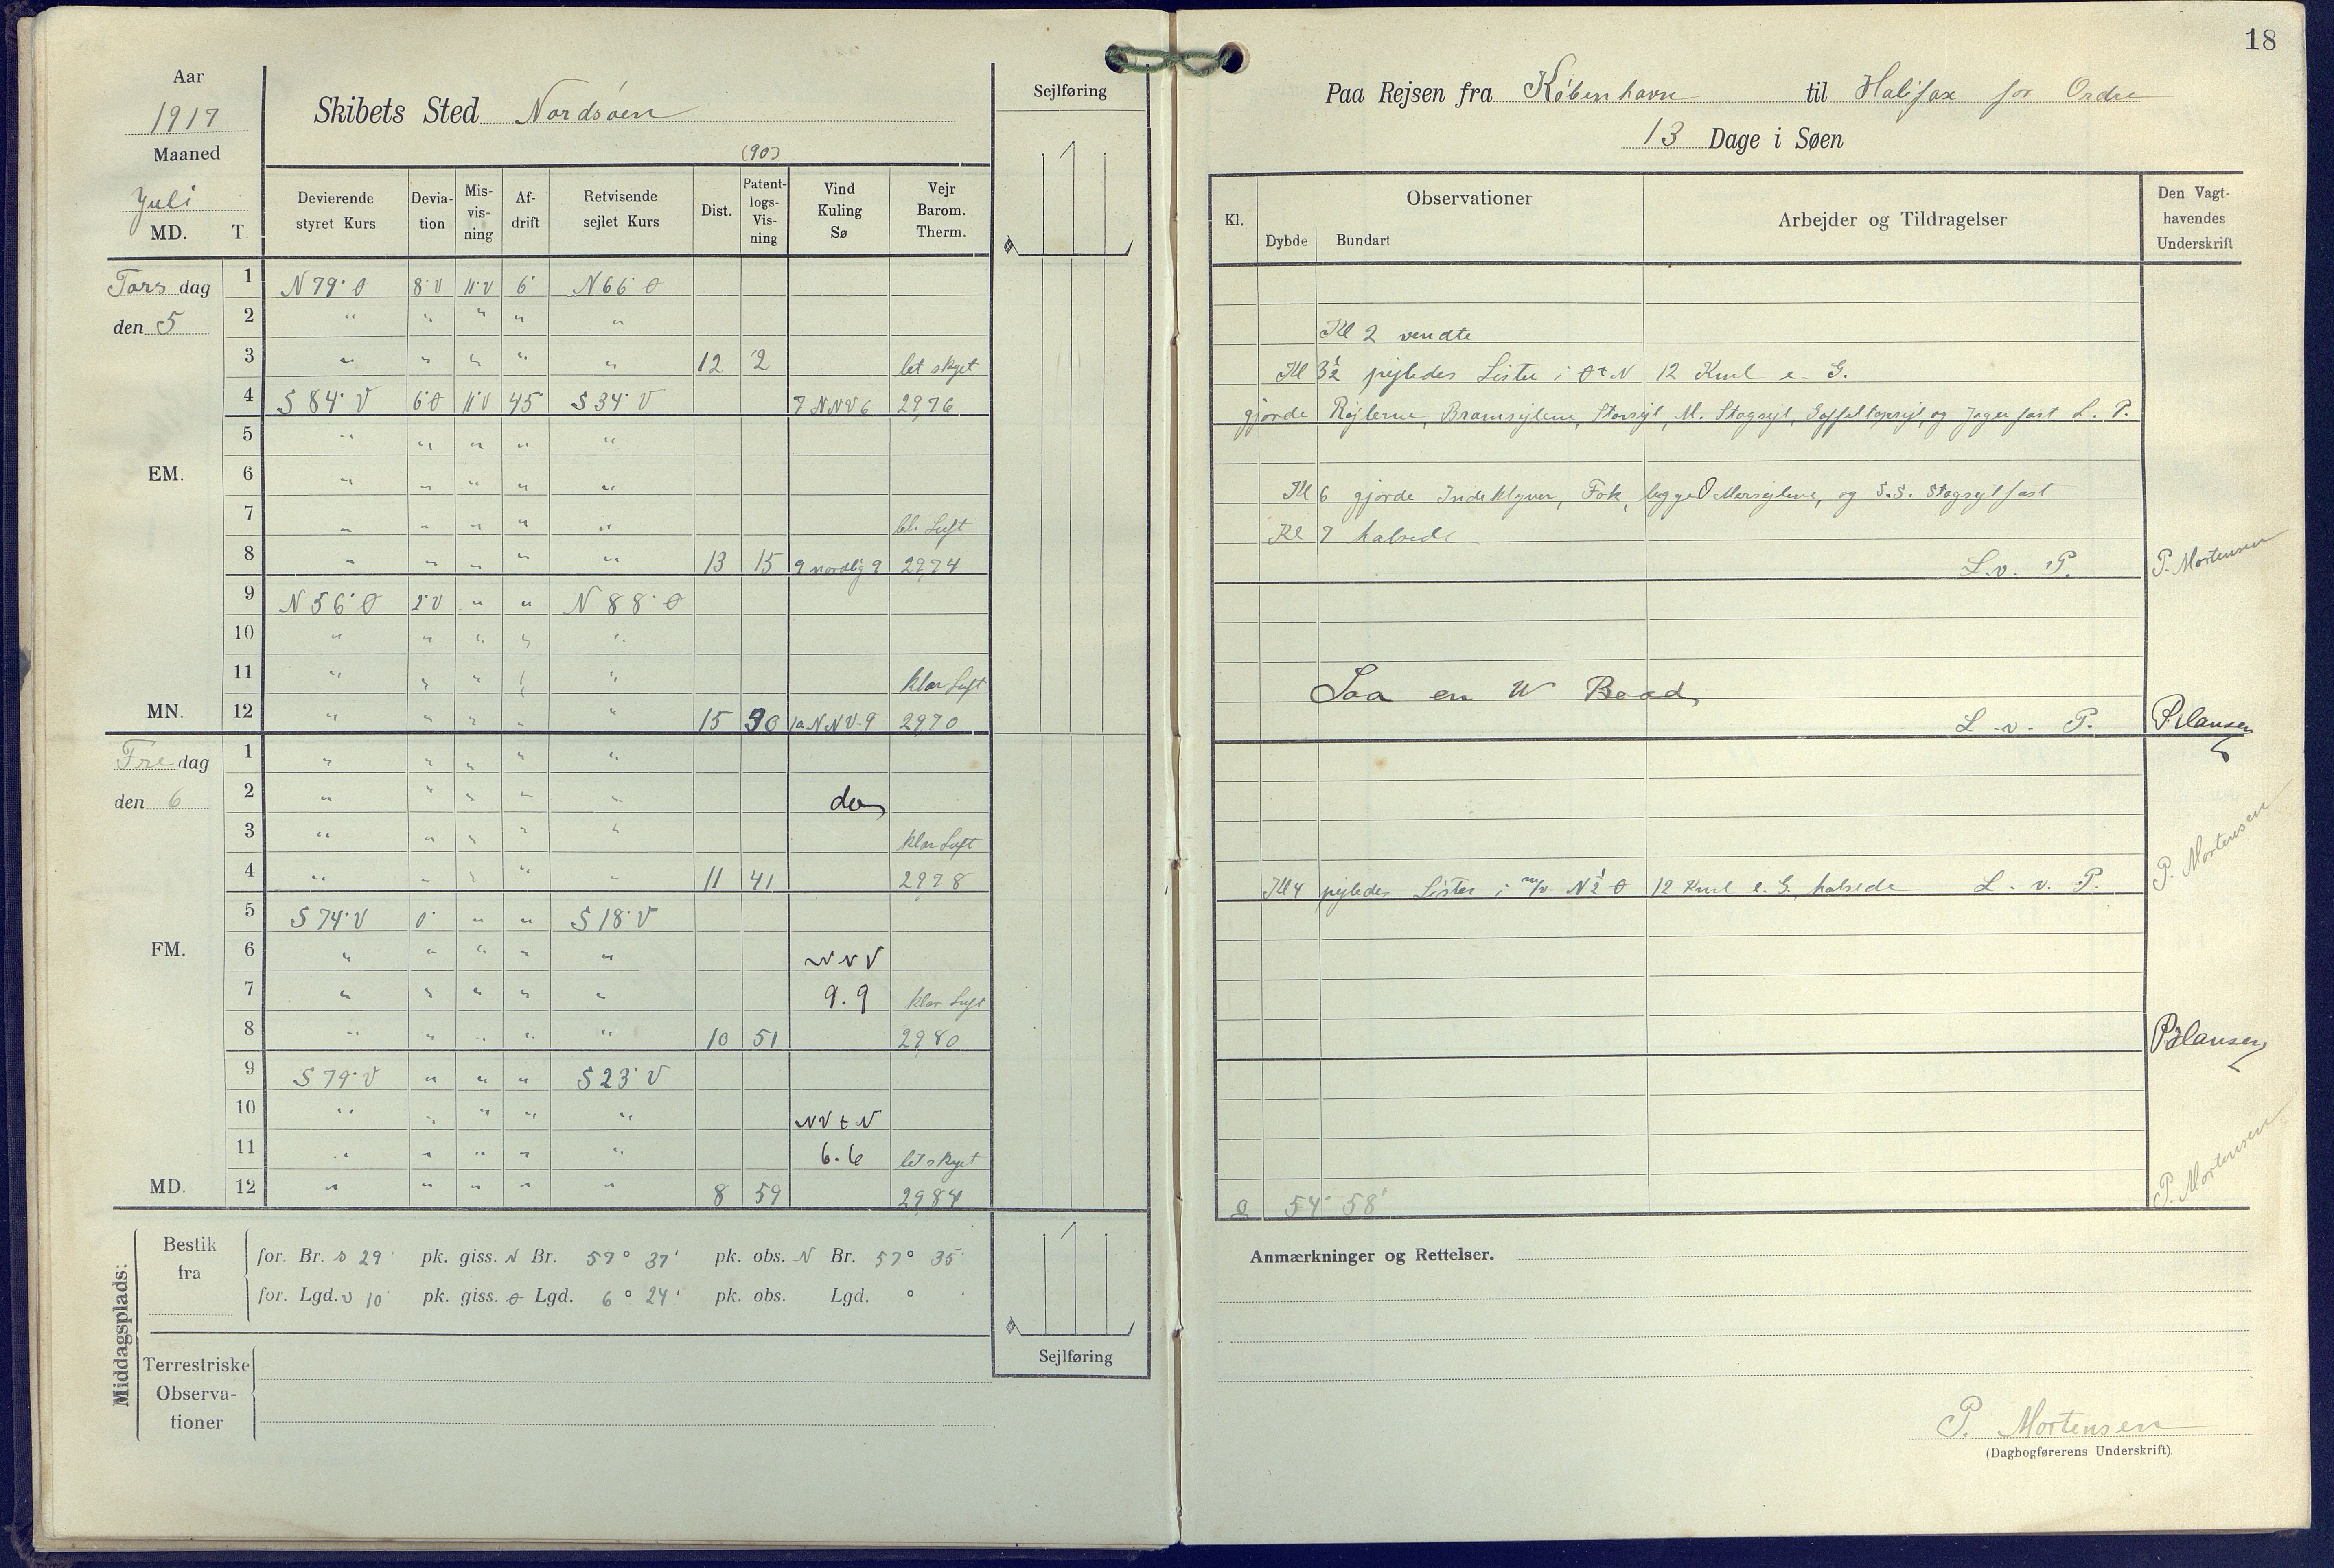 Aar
1917
Maaned
Juli
MD. T.
Skibets Sted Nordsøen
(90)
Devierende styret Kurs Devia- tion Mis- vis- ning Af- drift Retvisende sejlet Kurs Dist. Patent- logs- Vis- ning Vind Kuling Sø Vejr Barom. Therm.
Sejlføring
Tors dag 1 N 79° Ø 8° V 11° V 6° N 66° Ø
den 5 2 " " " " "
3 " " " " " 12 2 let skyet
4 S 84° V 6° Ø 11° V 45° S 34° V 7 NNV 6 2976
5 " " " " "
EM. 6 " " " " "
7 " " " " " Luft
8 " " " " " 13 15 9 nordlig 9 2974
9 N 56° Ø 2° V " " N 88° Ø
10 " " " " "
11 " " " " " klar Luft
MN. 12 " " " " " 15 30 10 NNV 9 2970
Fre dag 1 " " " " "
den 6 2 " " " " " do
3 " " " " " klar Luft
4 " " " " " 11 41 2978
5 S 74° V 0° " " S 18° V
FM. 6 " " " " " NNV
7 " " " " " 9.9 klar Luft
8 " " " " " 10 51 2980
9 S 79° V " " " S 23° V
10 " " " " " NV t N
11 " " " " " 6.6 let skyet
MD. 12 " " " " " 8 59 2984
Middagsplads:
Bestik fra
for. Br. S 29' pk. giss. N Br. 57° 37' pk. obs. N Br. 57° 35'
for. Lgd. V 10' pk. giss. Ø Lgd. 6° 24' pk. obs. Lgd. °
Terrestriske Observa- tioner
Sejlføring
18
Paa Rejsen fra København til Halifax for Ordre
13 Dage i Søen
Kl. Observationer Dybde Bundart Arbejder og Tildragelser Den Vagt- havendes Underskrift
Kl 2 vendte
Kl 3½ pejledes Lister i Ø t N 12 Kml e. G.
gjorde Røjlerne, Bramsejlene, Storsejl, M. Stagsejl, Gaffeltopsejl, og Jager fast L. P.
Kl 6 gjorde Indeklyver, Fok, begge Mersejlene, og S.S. Stagsejl fast
Kl 7 halsede
L. v. P. P. Mortensen
Saa en U Baad
L. v. P.
Kl 4 pejledes Lister i m/v. N ½ Ø 12 Kml e. G. halsede L. v. P. P. Mortensen
54° 58' P. Mortensen
Anmærkninger og Rettelser.
P. Mortensen
(Dagbogførerens Underskrift).